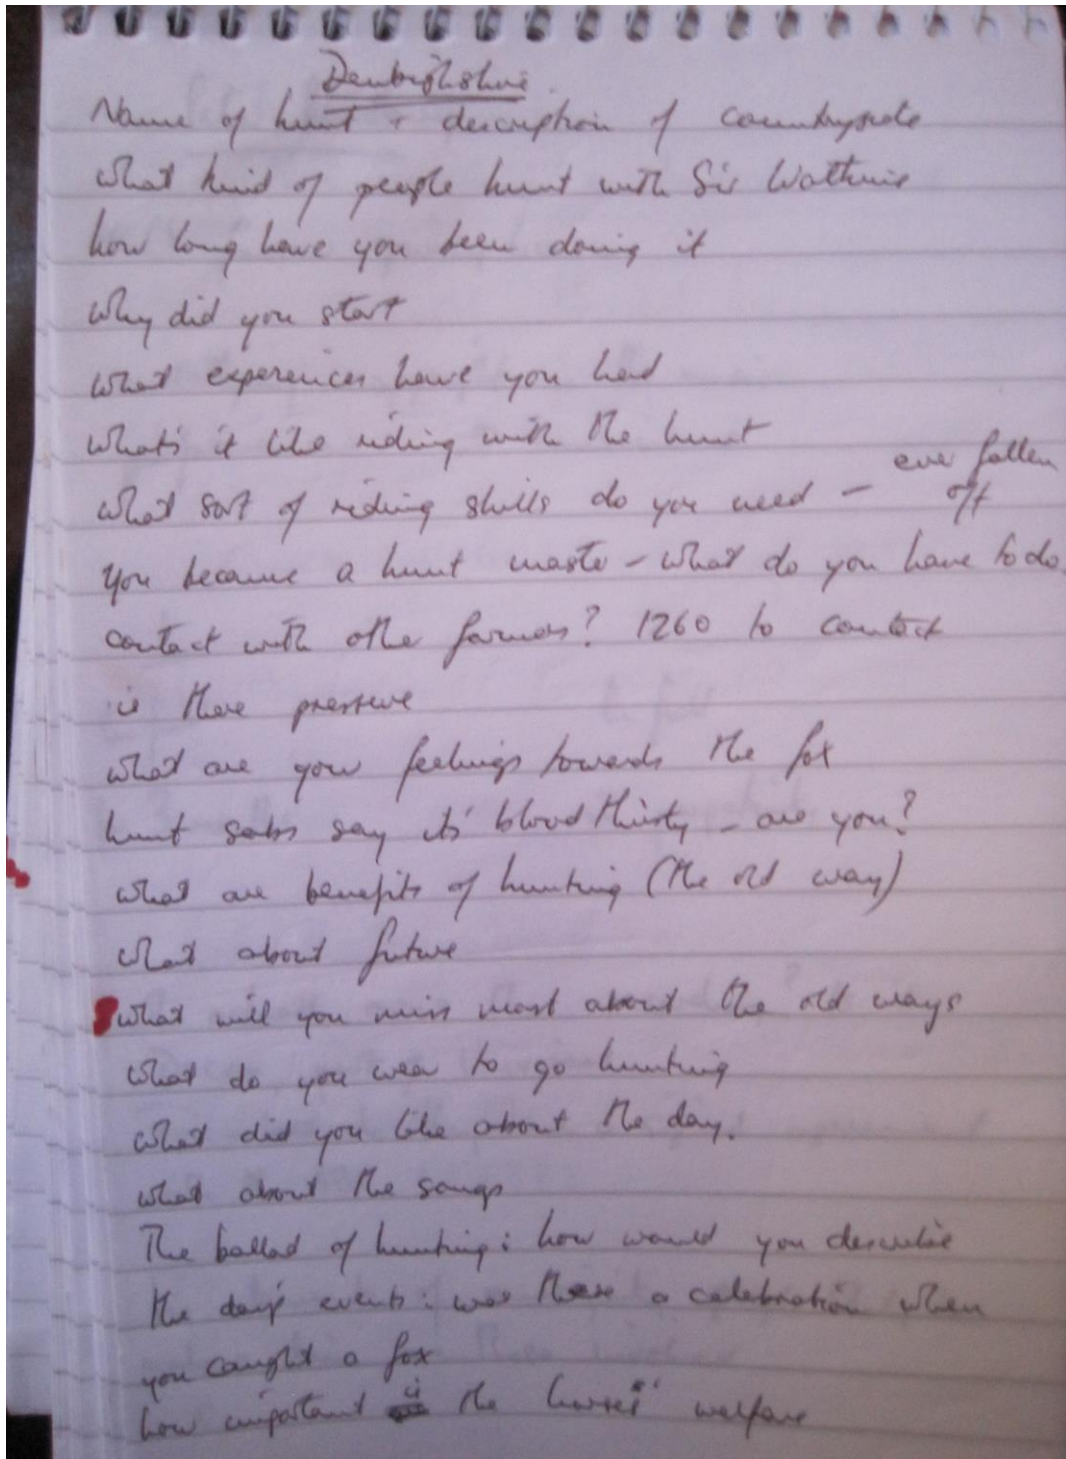 Denbighshire
Name of hunt + description of countryside
What kind of people hunt with Sir Watkins
how long have you been doing it
Why did you start
What experiences have you had
what's it like riding with the hunt
What sort of riding skills do you need - ever fallen off
You became a hunt master - what do you have to do
contact with other farmers? 1260 to contact
is there pressure
what are your feelings towards the fox
hunt sabs say it's bloodthirsty - are you?
What are benefits of hunting (the old way)
what about future
What will you miss most about the old ways
What do you wear to go hunting
What did you like about the day.
what about the songs
The ballad of hunting: how would you describe
the day's events: was there a celebration when
you caught a fox
how important is the horses' welfare